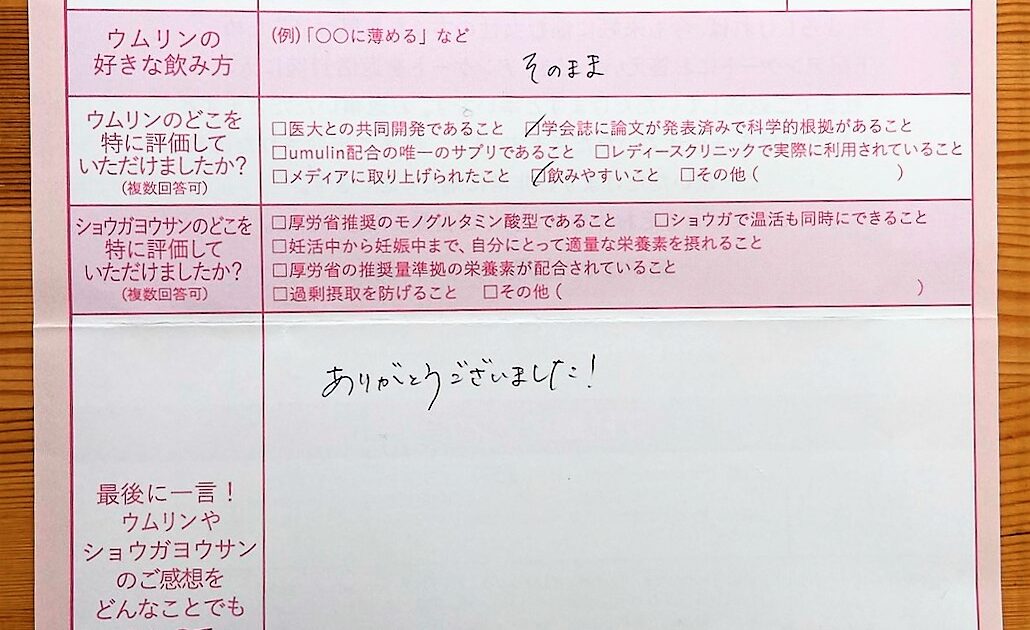 ウムリンの
好きな飲み方
(例)「〇〇に薄める」など
そのまま
ウムリンのどこを
特に評価して
いただけましたか?
(複数回答可)
□医大との共同開発であること ☑学会誌に論文が発表済みで科学的根拠があること
□umulin配合の唯一のサプリであること □レディースクリニックで実際に利用されていること
□メディアに取り上げられたこと ☑飲みやすいこと □その他( )
ショウガヨウサンのどこを
特に評価して
いただけましたか?
(複数回答可)
□厚労省推奨のモノグルタミン酸型であること □ショウガで温活も同時にできること
□妊活中から妊娠中まで、自分にとって適量な栄養素を摂れること
□厚労省の推奨量準拠の栄養素が配合されていること
□過剰摂取を防げること □その他( )
最後に一言!
ウムリンや
ショウガヨウサン
のご感想を
どんなことでも
ありがとうございました!